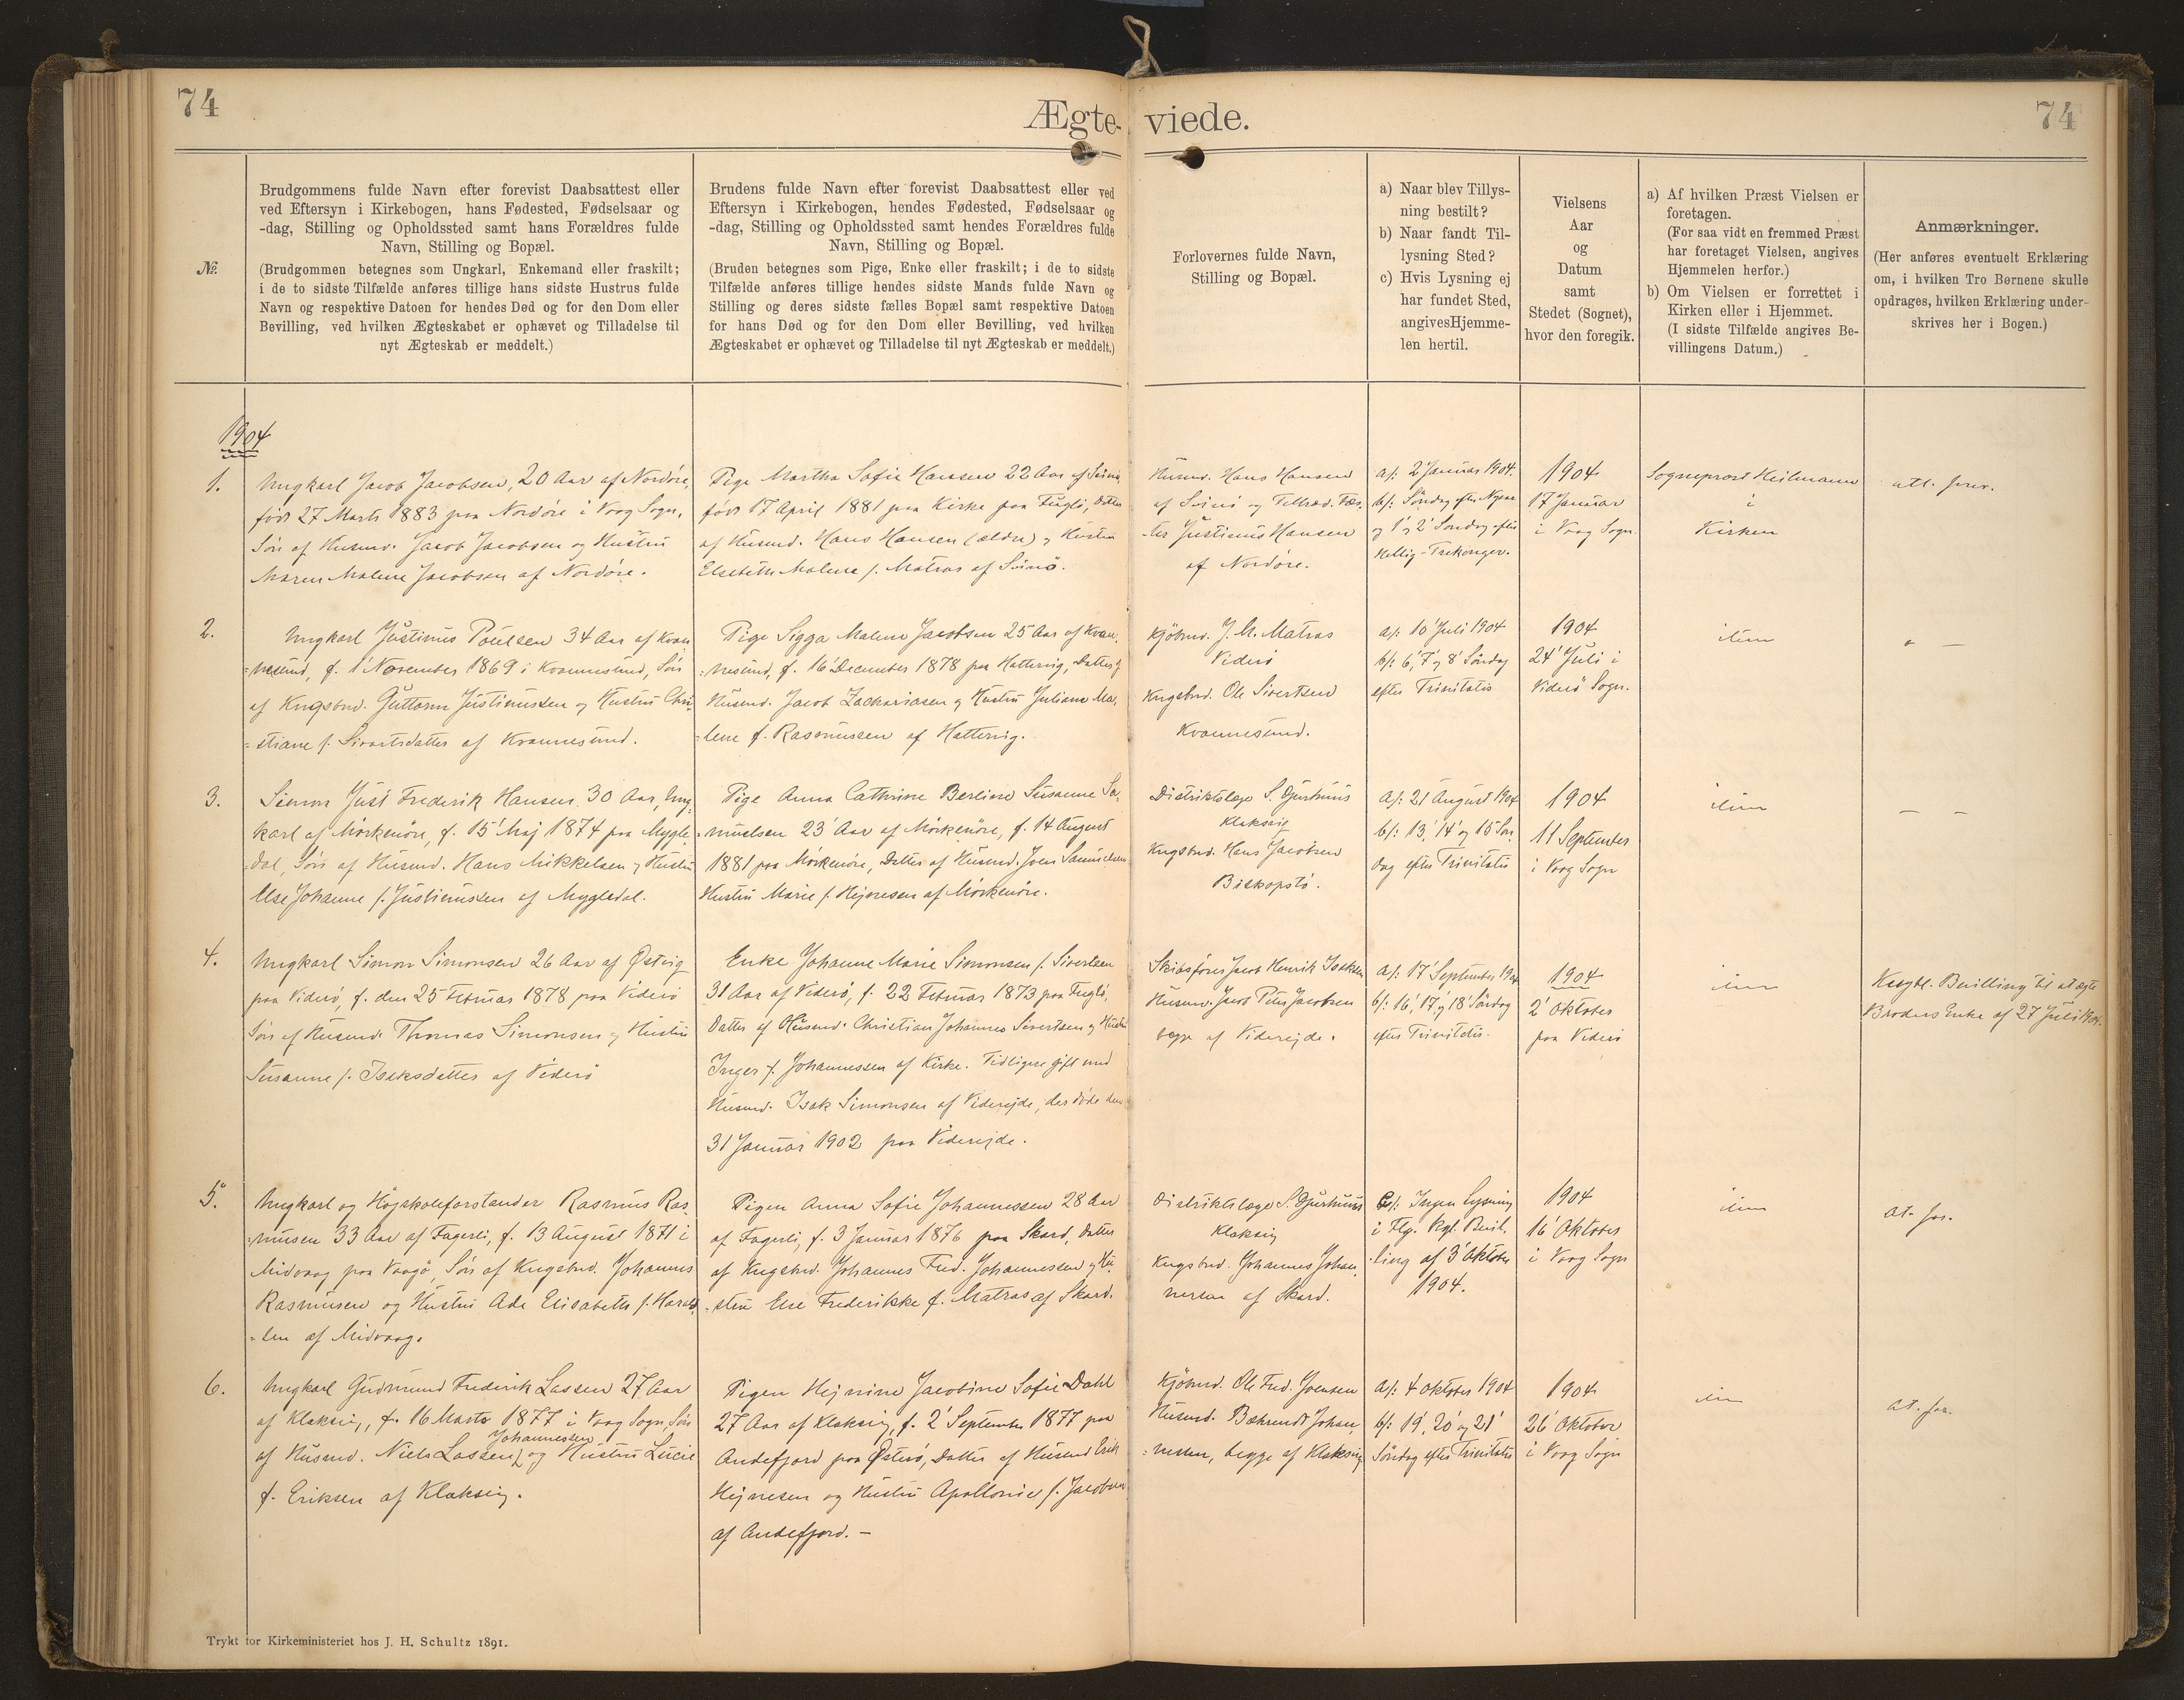 74
Ægte-
viede.
74
№
Brudgommens fulde Navn efter forevist Daabsattest eller
ved Eftersyn i Kirkebogen, hans Fødested, Fødselsaar og
-dag, Stilling og Opholdssted samt hans Forældres fulde
Navn, Stilling og Bopæl.
(Brudgommen betegnes som Ungkarl, Enkemand eller fraskilt;
i de to sidste Tilfælde anføres tillige hans sidste Hustrus fulde
Navn og respektive Datoen for hendes Død og for den Dom eller
Bevilling, ved hvilken Ægteskabet er ophævet og Tilladelse til
nyt Ægteskab er meddelt.)
Brudens fulde Navn efter forevist Daabsattest eller ved
Eftersyn i Kirkebogen, hendes Fødested, Fødselsaar og
-dag, Stilling og Opholdssted samt hendes Forældres fulde
Navn, Stilling og Bopæl.
(Bruden betegnes som Pige, Enke eller fraskilt; i de to sidste
Tilfælde anføres tillige hendes sidste Mands fulde Navn og
Stilling og deres sidste fælles Bopæl samt respektive Datoen
for hans Død og for den Dom eller Bevilling, ved hvilken
Ægteskabet er ophævet og Tilladelse til nyt Ægteskab er meddelt.)
Forlovernes fulde Navn,
Stilling og Bopæl.
a) Naar blev Tillys-
ning bestilt?
b) Naar fandt Til-
lysning Sted?
c) Hvis Lysning ej
har fundet Sted,
angives Hjemme-
len hertil.
Vielsens
Aar
og
Datum
samt
Stedet (Sognet),
hvor den foregik.
a) Af hvilken Præst Vielsen er
foretagen.
(For saa vidt en fremmed Præst
har foretaget Vielsen, angives
Hjemmelen herfor.)
b) Om Vielsen er forrettet i
Kirken eller i Hjemmet.
(I sidste Tilfælde angives Be-
villingens Datum.)
Anmærkninger.
(Her anføres eventuelt Erklæring
om, i hvilken Tro Børnene skulle
opdrages, hvilken Erklæring under-
skrives her i Bogen.)
1904
1.
Ungkarl Jacob Jacobsen, 20 Aar af Nordøre,
født 27 Marts 1883 paa Nordøre i Vaag Sogn,
Søn af Husmd. Jacob Jacobsen og Hustru
Maren Malene Jacobsen af Nordøre.
Pige Martha Sofie Hansen 22 Aar af Svinö
født 17 April 1881 paa Kirke paa Fuglö, Datter
af Husmd. Hans Hansen (ældre) og Hustru
Elsebeth Malene f. Matras af Svinö.
Husmd. Hans Hansen
af Svinö og
Justinus Hansen
af Nordøre.
a/: 2 Januar 1904.
b/: Söndag efter Nytaar
og 1' og 2' Sondag efter
Hellig-Trekonger.
1904
17 Januar
i Vaag Sogn
Sogneprost Heilmann
i
Kirken
att. forev.
2.
Ungkarl Justinus Poulsen 34 Aar af Kvan-
=nesund, f. 1' November 1869 i Kvannesund, Søn
af Kngsbnd. Guttorm Justinussen og Hustru Chri-
=stiane f. Sivertsdatter af Kvannesund.
Pige Sigga Malene Jacobsen 25 Aar af Kvan-
=nesund, f. 16' December 1878 paa Hattervig, Datter af
Husmd. Jacob Zachariasen og Hustru Juliane Ma-
=lene f. Rasmussen af Hattervig.
Kjöbmd. J. M. Matras
Viderö
Kngsbnd. Ole Sivertsen
Kvannesund.
a/: 10' Juli 1904
b/: 6', 7' og 8' Söndag
efter Trinitatis
1904
24' Juli i
Viderö Sogn.
idem
— —
3.
Simon Just Frederik Hansen 30 Aar, Ung-
karl af Mörkenöre, f. 15' Maj 1874 paa Mygle-
dal, Søn af Husmd. Hans Mikkelsen og Hustru
Else Johanne f. Justinussen af Mygledal.
Pige Anna Cathrine Susanne Sa-
=muelsen 23' Aar af Mörkenöre, f. 14 August
1881 paa Mörkenöre, Datter af Husmd. Joen Samuelsen
Hustru Marie f. Hejnesen af Mörkenöre.
Distriktslæge S. Djurhuus
Klaksvig
Kngsbnd. Hans Jacobsen
Biskopstö.
a/: 21 August 1904
b/: 13', 14' og 15 Sön-
dag efter Trinitatis
1904
11 September
i Vaag Sogn
idem
— —
4.
Ungkarl Simon Simonsen 26 Aar af Østvig
paa Viderö, f. den 25 Februar 1878 paa Viderö
Søn af Husmd. Thomas Simonsen og Hustru
Susanne f. Isaksdatter af Viderö
Enke Johanne Marie Simonsen f. Sivertsen
31 Aar af Viderö, f. 22 Februar 1873 paa Fuglö,
Datter af Husmd. Christian Johannes Sivertsen og Hustru
Inger f. Johannessen af Kirke. Tidligere gift med
Husmd. Isak Simonsen af Viderejde, der döde den
31 Januar 1902 paa Viderejde.
Skibsförer Jacob Henrik Isaksen
Husmd. Jacob Peter Jacobsen
begge af Viderejde.
a/: 17' September 1904
b/: 16', 17' og 18' Söndag
efter Trinitatis.
1904
2' Oktober
paa Viderö
idem
Kngl. Bevilling til at ægte
Broders Enke af 27 Juli 1904.
5.
Ungkarl og Höjskoleforstander Rasmus Ras-
=mussen 33 Aar af Fagerli, f. 13 August 1871 i
Midvaag paa Vaagö, Søn af Kngsbnd. Johannes
Rasmussen og Hustru Ada Elisabeth f.
=sen af Midvaag.
Pigen Anna Sofie Johannessen 28 Aar
af Fagerli, f. 3 Januar 1876 paa Skard, Datter
af Kngsbnd. Johannes Fred. Johannesen og Hu-
=stru Else Frederikke f. Matras af Skard.
Distriktslæge S. Djurhuus
Klaksvig
Kngsbnd. Johannes Johan-
nesen af Skard.
c/: Ingen Lysning
i Flg. Kgl. Bevil-
ling af 3' Oktober
1904.
1904
16' Oktober
i Vaag Sogn
idem
at. for.
6.
Ungkarl Gudmund Frederik Lassen 27 Aar
af Klaksvig, f. 16 Marts 1877 i Vaag Sogn, Søn
Johannessen
af Husmd. Niels Lassen og Hustru Lucie
f. Eriksen af Klaksvig.
Pigen Hejnine Jacobine Sofie Dahl
27 Aar af Klaksvig, f. 2' September 1877 paa
Andefjord paa Østerö, Datter af Husmd Erik
Hejnesen og Hustru Apollonie f. Jacobsen
af Andefjord. —
Kjöbmd. Ole Fred. Joensen
Husmd. Bahrendt Johan-
=nesen, begge af Klaksvig
a/: 4 Oktober 1904
b/: 19', 20' og 21'
Söndag efter Trinitatis
1904
26' Oktober
i Vaag Sogn
idem
at. for.
Trykt for Kirkeministeriet hos J. H. Schultz 1891.